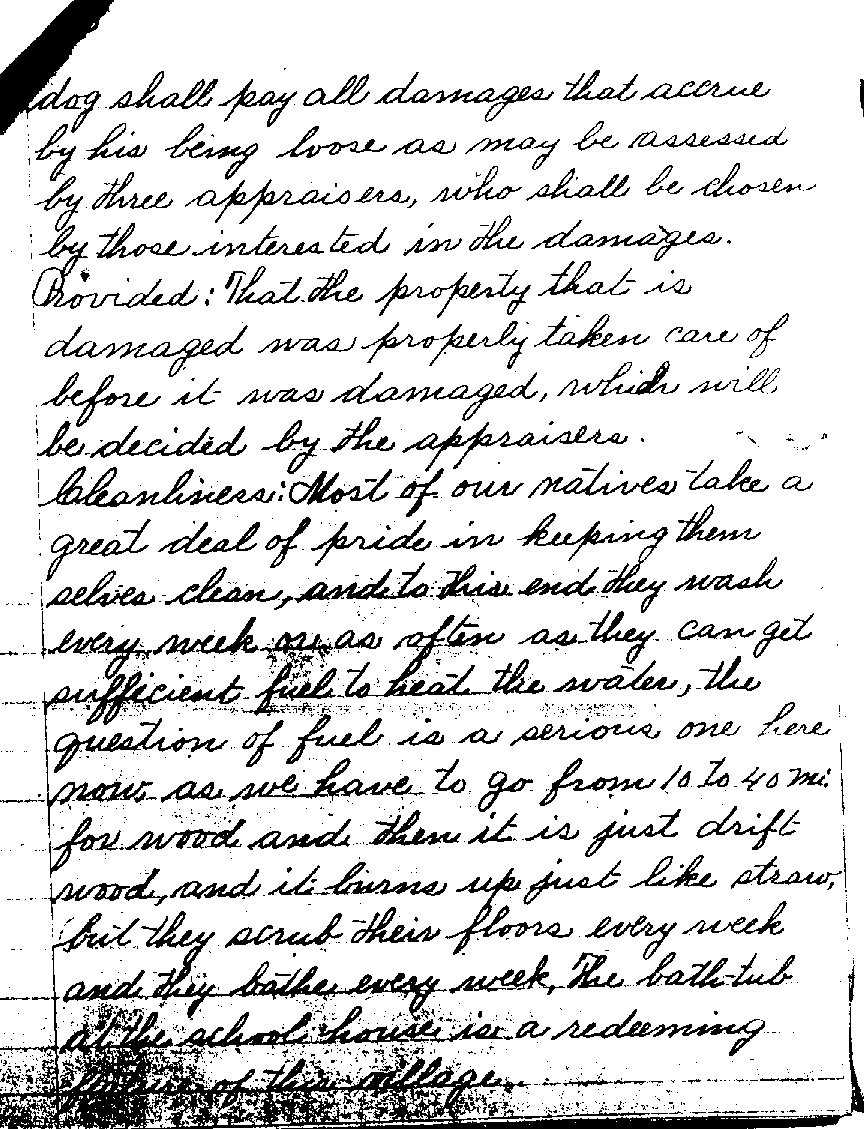 dog shall pay all damages that accrue
by his being loose as may be assessed
by three appraisers, who shall be chosen
by those interested in the damages.
Provided: That the property that is
damaged was properly taken care of
before it was damaged, which will
be decided by the appraisers.
Cleanliness: Most of our natives take a
great deal of pride in keeping them
selves clean, and to this end they wash
every week or as often as they can get
sufficient fuel to heat the water, the
question of fuel is a serious one here
now, as we have to go from 10 to 40 mi.
for wood and then it is just drift
wood, and it burns up just like straw,
but they scrub their floors every week
and they bathe every week, The bath-tub
at the school house is a redeeming
feature of this village.